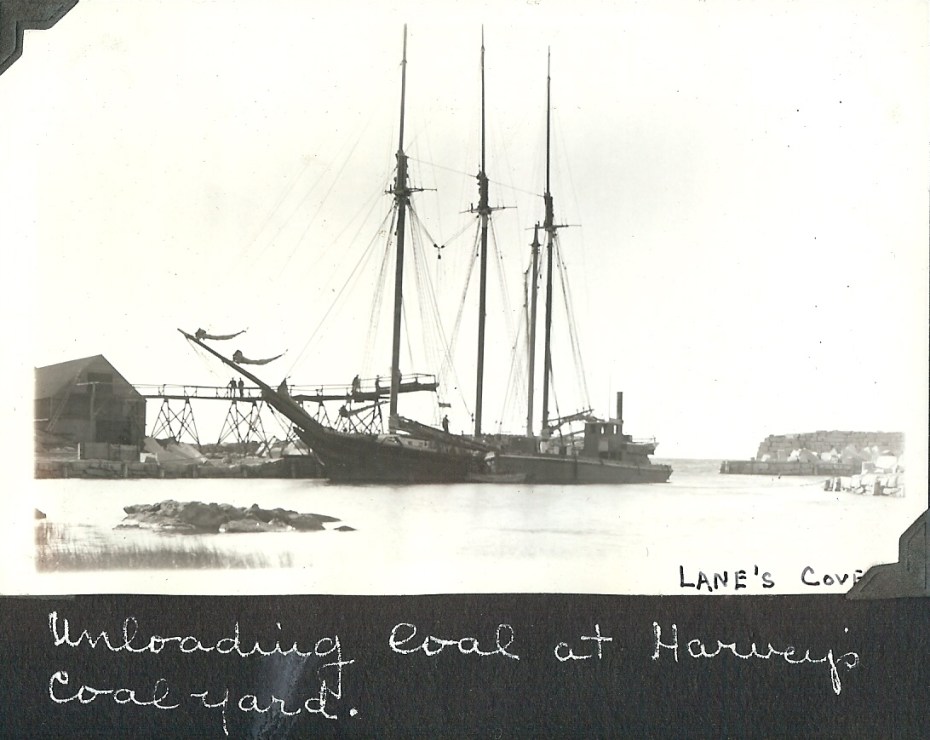 LANE'S COVE
Unloading Coal at Harvey's
Coal yard.